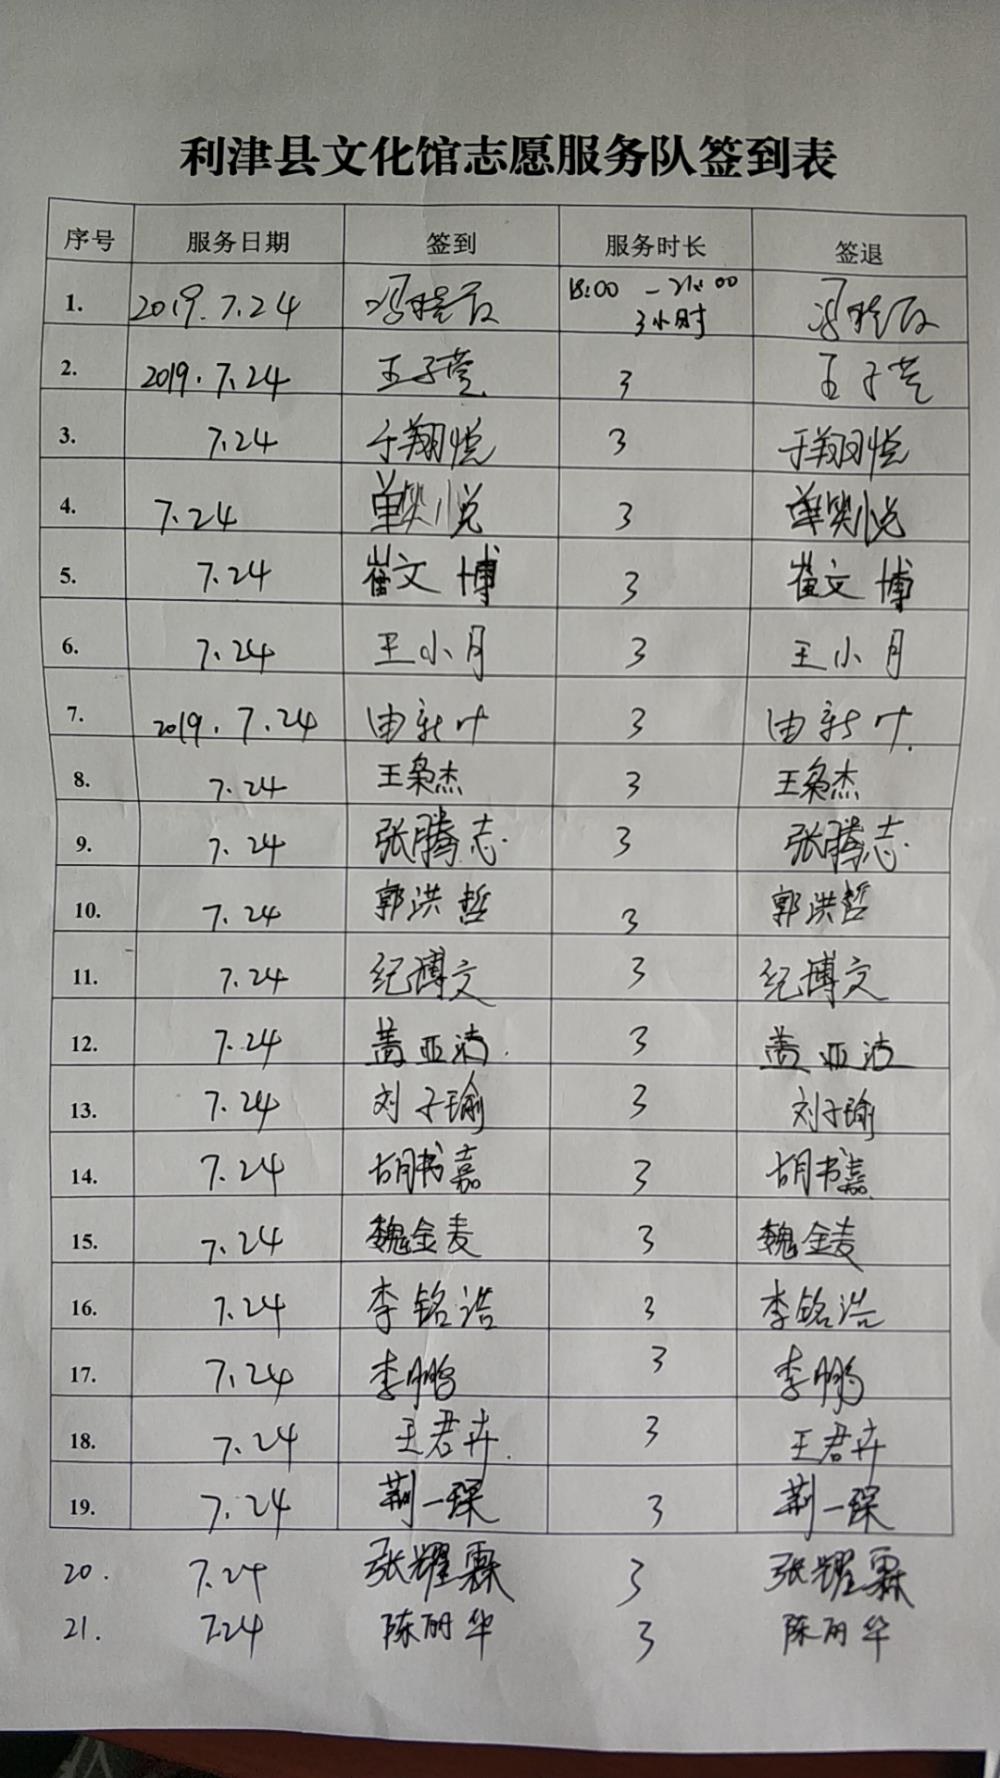 利津县文化馆志愿服务队签到表
序号 服务日期 签到 服务时长 签退
1. 2019.7.24 冯 18:00 - 21:00 3小时 冯
2. 2019.7.24 王子萱 3 王子萱
3. 7.24 于翔悦 3 于翔悦
4. 7.24 单笑悦 3 单笑悦
5. 7.24 崔文博 3 崔文博
6. 7.24 王小月 3 王小月
7. 2019.7.24 由新叶 3 由新叶
8. 7.24 王枭杰 3 王枭杰
9. 7.24 张腾志 3 张腾志
10. 7.24 郭洪哲 3 郭洪哲
11. 7.24 纪博文 3 纪博文
12. 7.24 盖亚洁 3 盖亚洁
13. 7.24 刘子瑜 3 刘子瑜
14. 7.24 胡书嘉 3 胡书嘉
15. 7.24 魏金麦 3 魏金麦
16. 7.24 李铭浩 3 李铭浩
17. 7.24 李鹏 3 李鹏
18. 7.24 王君卉 3 王君卉
19. 7.24 荆一琛 3 荆一琛
20. 7.24 张耀霖 3 张耀霖
21. 7.24 陈丽华 3 陈丽华